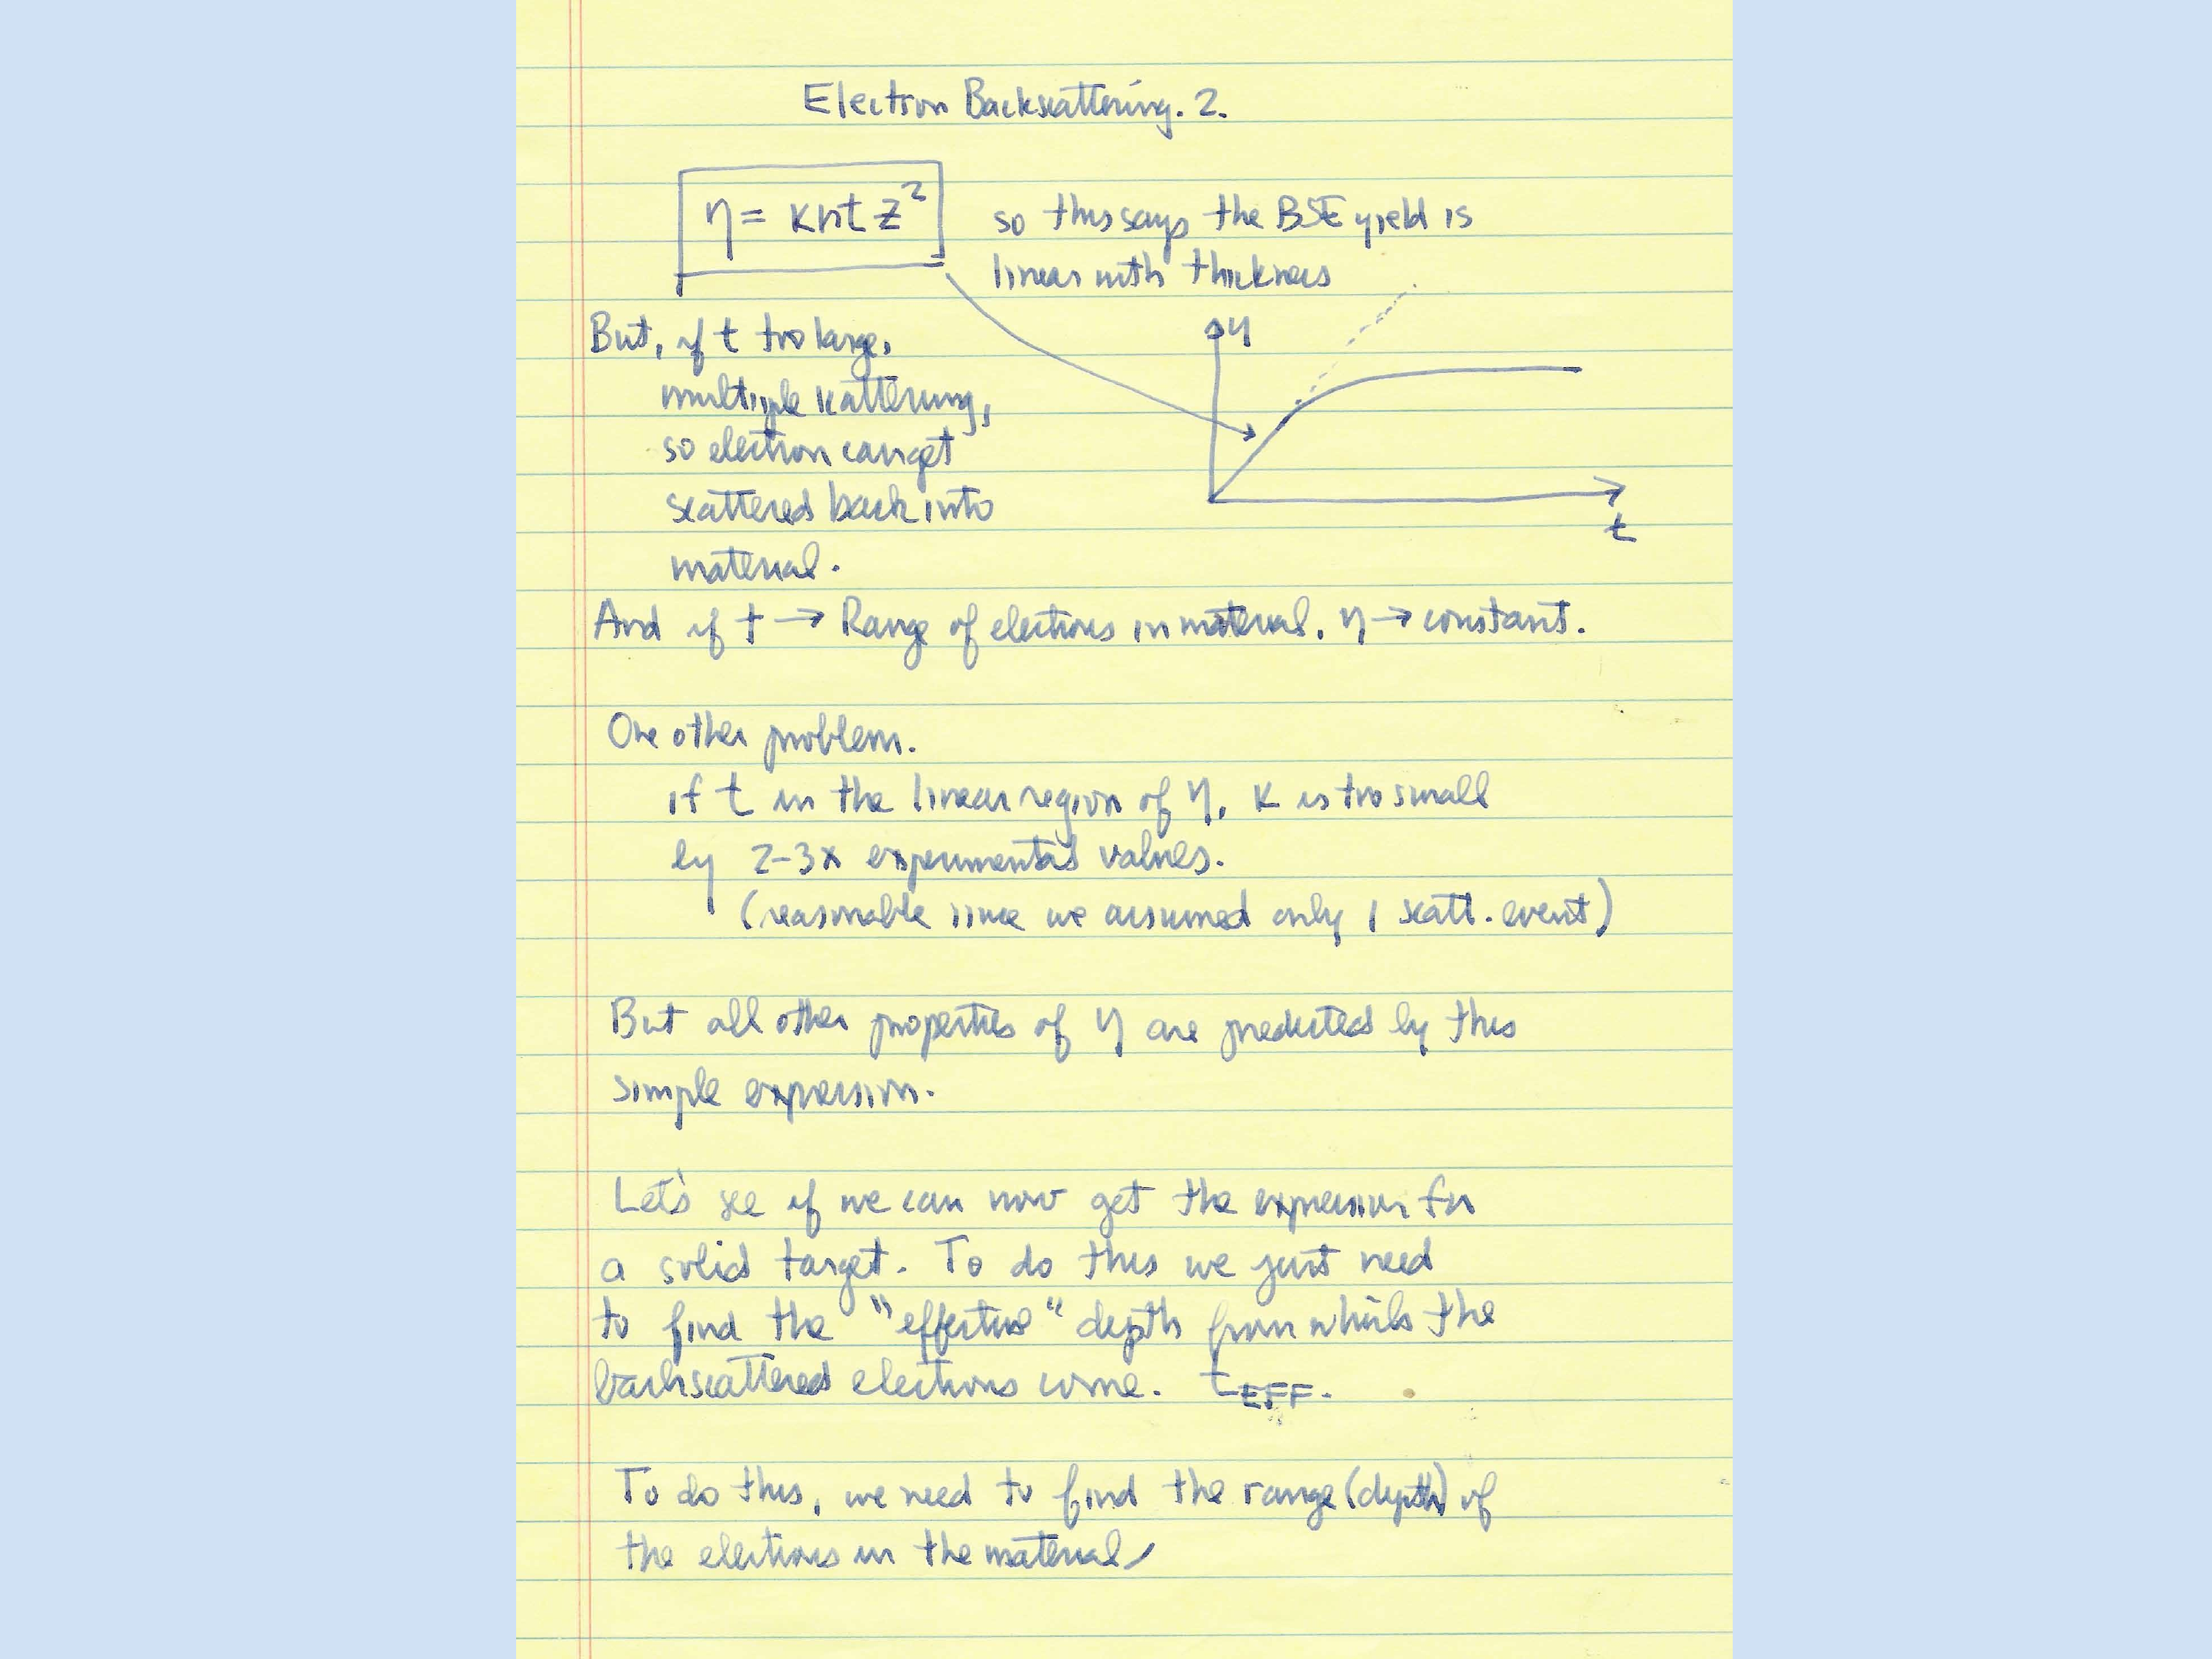 Electron Backscattering. 2.
η = κntZ²
so this says the BSE yield is
linear with thickness
But, if t too large,
multiple scattering,
so electron can get
scattered back into
material.
η
t
And if t → Range of electrons in material, η → constant.
One other problem.
if t in the linear region of η, κ is too small
by 2-3x experimental values.
(reasonable since we assumed only 1 scatt. event)
But all other properties of η are predicted by this
simple expression.
Let's see if we can now get the expression for
a solid target. To do this we just need
to find the "effective" depth from which the
backscattered electrons come. tEFF.
To do this, we need to find the range (depth) of
the electrons in the material